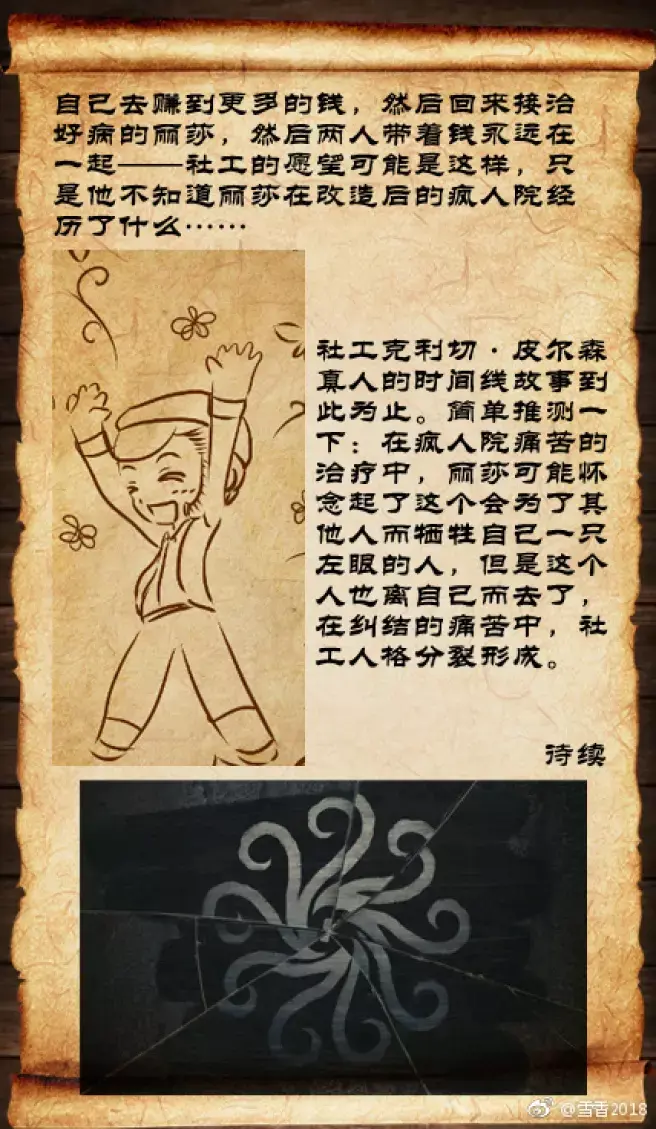 自己去赚到更多的钱，然后回来接治
好病的丽莎，然后两人带着钱永远在
一起——社工的愿望可能是这样，只
是他不知道丽莎在改造后的疯人院经
历了什么……
社工克利切·皮尔森
真人的时间线故事到
此为止。简单推测一
下：在疯人院痛苦的
治疗中，丽莎可能怀
念起了这个会为了其
他人而牺牲自己一只
左眼的人，但是这个
人也离自己而去了，
在纠结的痛苦中，社
工人格分裂形成。
待续
@雪香2018